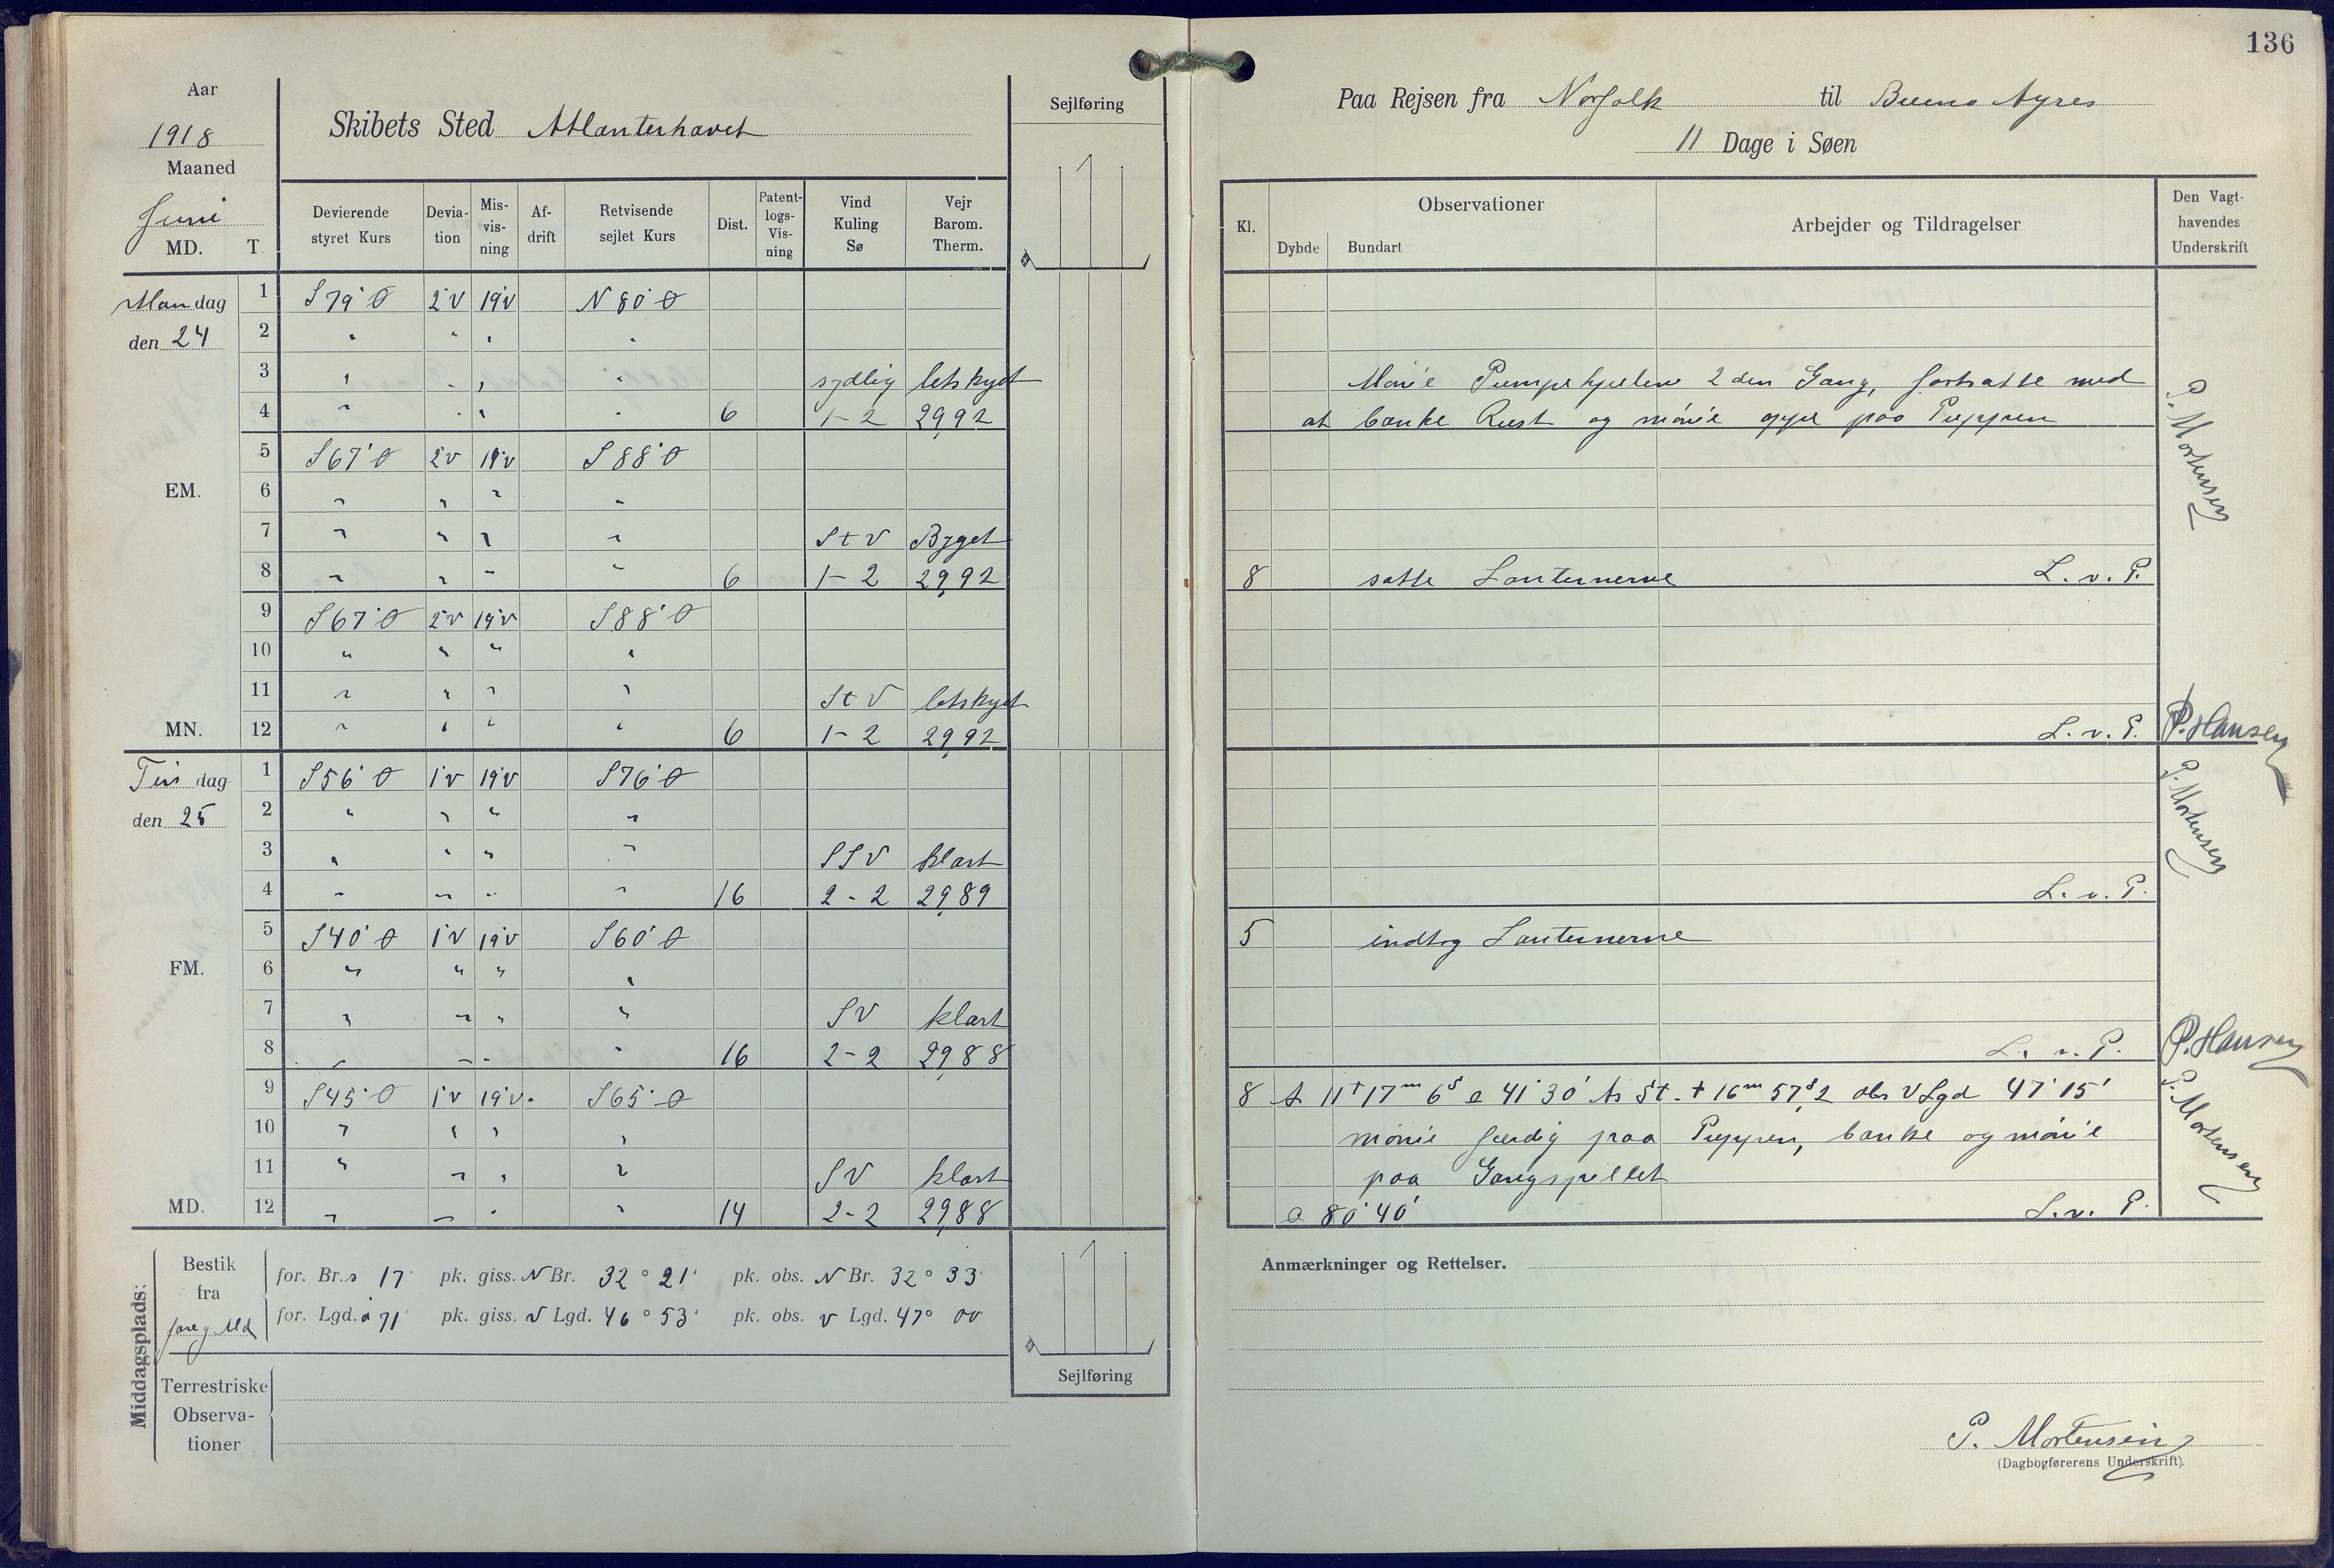 136
Aar
1918
Maaned
Juni
MD. T.
Skibets Sted Atlanterhavet
Sejlføring
Paa Rejsen fra Norfolk til Bueno Ayres
11 Dage i Søen
Devierende styret Kurs
Devia-tion
Mis-vis-ning
Af-drift
Retvisende sejlet Kurs
Dist.
Patent-logs-Vis-ning
Vind Kuling Sø
Vejr Barom. Therm.
Kl.
Observationer
Dybde Bundart
Arbejder og Tildragelser
Den Vagt-havendes Underskrift
Mandag 1 S 79° Ø 2°V 19°V N 80° Ø
den 24 2 " " " "
3 " " " " sydlig letskyet
4 " " " " 6 1-2 29,92
5 S 67° Ø 2°V 19°V S 88° Ø
EM. 6 " " " "
7 " " " " StV Byget
8 " " " " 6 1-2 29,92
9 S 67° Ø 2°V 19°V S 88° Ø
10 " " " "
11 " " " " StV letskyet
MN. 12 " " " " 6 1-2 29,92
Tirsdag 1 S 56° Ø 1°V 19°V S 76° Ø
den 25 2 " " " "
3 " " " " SSV klart
4 " " " " 16 2-2 29,89
5 S 40° Ø 1°V 19°V S 60° Ø
FM. 6 " " " "
7 " " " " SV klart
8 " " " " 16 2-2 29,88
9 S 45° Ø 1°V 19°V. S 65° Ø
10 " " " "
11 " " " " SV klart
MD. 12 " " " " 14 2-2 29,88
Mønie Pumpekjælene 2den Gang, fortsatte med
at banke Rust og mønie oppe paa Puppen
P. Mortensen
8 satte Lanternerne L. v. P.
L. v. P. P. Hansen
P. Mortensen
L. v. P.
5 indtog Lanternerne
L. v. P. P. Hansen
8 11 17m 6s 41°30' St. + 16m 57s,2 obs V Lgd 47°15'
mønie færdig paa Puppen, banke og mønie
paa Gangspillet
80°40' L. v. P.
P. Mortensen
Middagsplads:
Bestik fra foreg Md
for. Br. s 17' pk. giss. N Br. 32° 21' pk. obs. N Br. 32° 33'
for. Lgd. ø 71' pk. giss. V Lgd. 46° 53' pk. obs. V Lgd. 47° 00
Terrestriske
Observa-
tioner
Sejlføring
Anmærkninger og Rettelser.
P. Mortensen
(Dagbogførerens Underskrift).